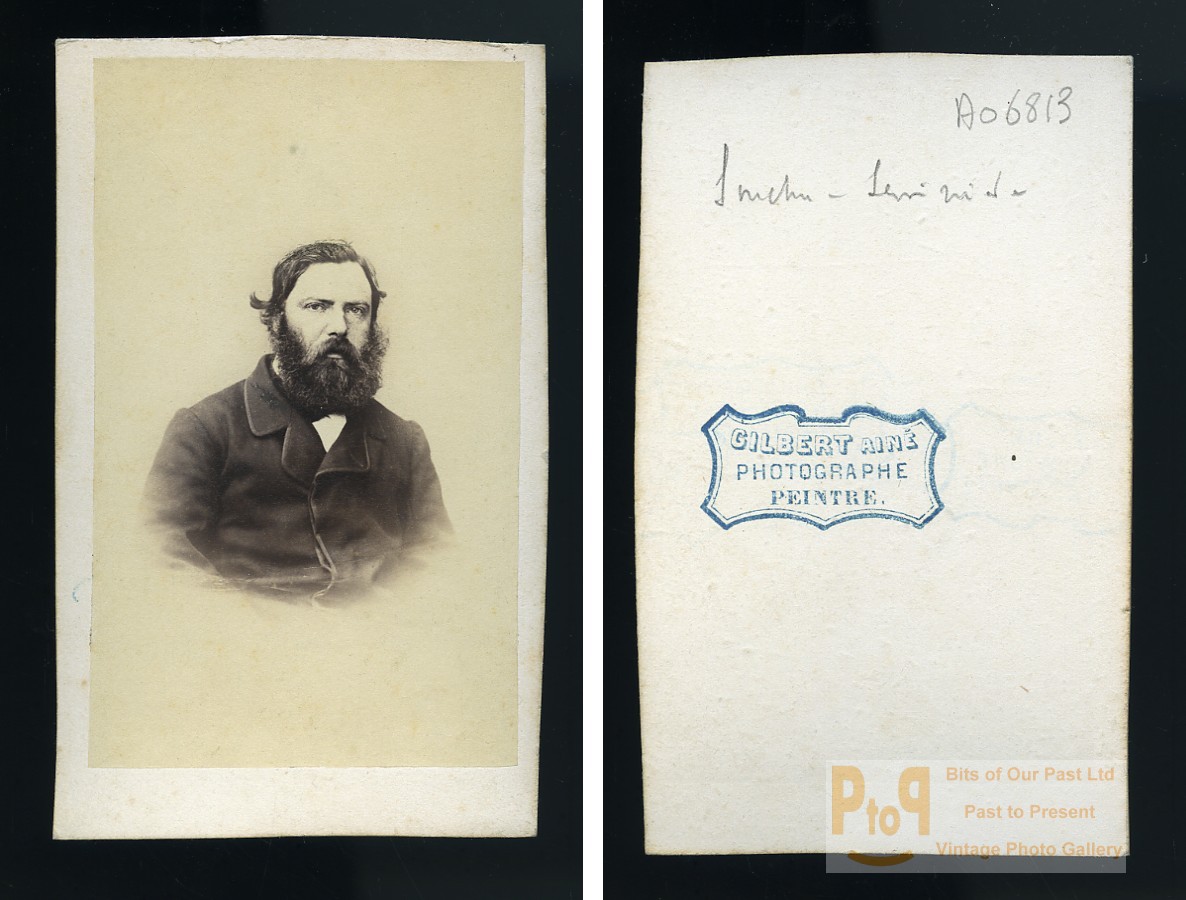 A06813
GILBERT AINÉ
PHOTOGRAPHE
PEINTRE.
PtoP
Bits of Our Past Ltd
Past to Present
Vintage Photo Gallery